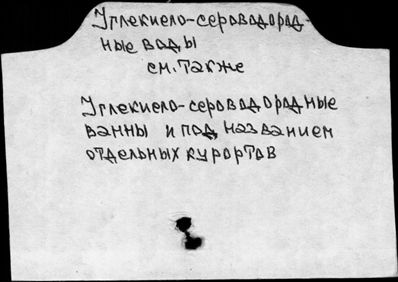 Углекисло-сероводород-
ные воды
см. также
Углекисло-сероводородные
ванны и под названием
отдельных курортов